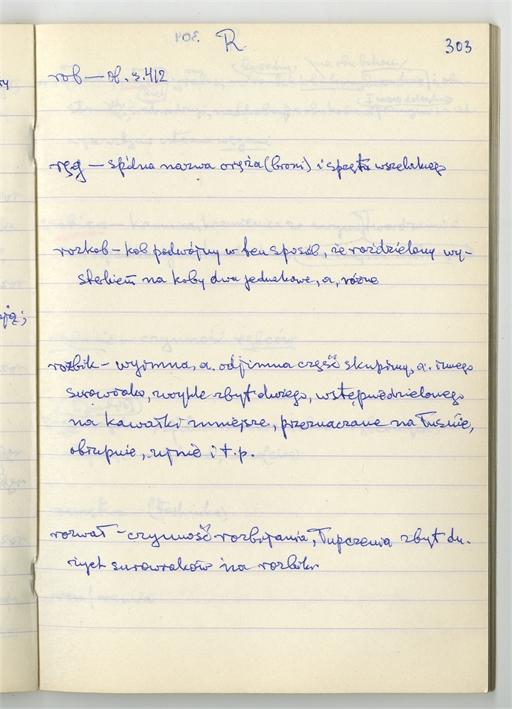 R. 303
rob — zł. s. 412
ręg — spólna nazwa oręża (broni) i spęta wszelakiego
rozkob — kob podwójny w ten sposób, że rozdzielany wy-
stekiem na koby dwa jednakowe, a, różne
rozbik — wyimna, a. odjimna część skupiny, a. innego
surowiaka, zwykle zbyt dużego, wstępnie dzielonego
na kawałki mniejsze, przeznaczane na łuśnie,
obrupnie, i t. p.
rozwał — czynność rozbijania, łupczenia zbyt du-
żych surowiaków na rozbiki